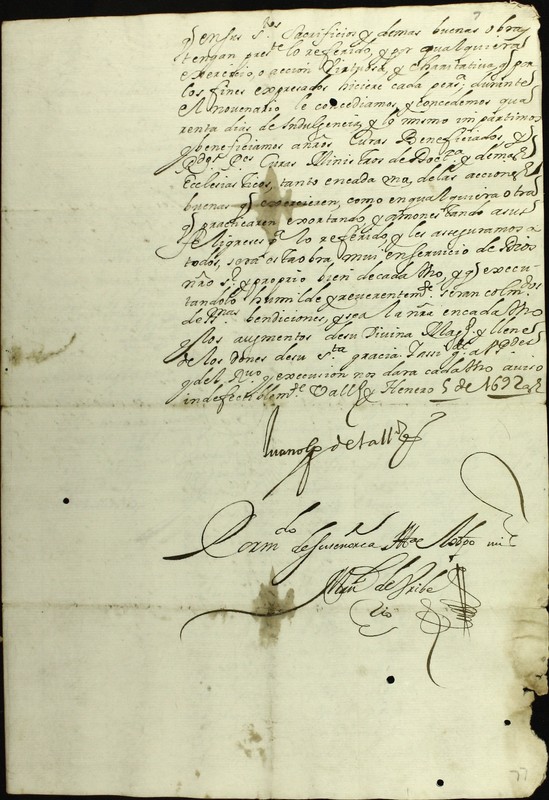 7
q̃ en sus s.tos Sacrificios y demas buenas obras
tengan pres.te lo referido, y por qualquiera
exercicio, o accion Virtuosa, y charitativa, q̃ por
los fines expresados hiciere cada pers.a durante
el novenario le concediamos, y concedemos qua
renta dias de Indulgencia, y lo mismo impartimos
y beneficiamos a nr̃os. Curas Beneficiados, y
P.es Curas Ministros de Doc.a y demas
Ecclesiasticos, tanto en cada una, de las acciones
buenas q̃ exercieren, como en qualquiera otra
q̃ practicaren exortando, y amonestando a sus
feligreses p.a lo referido, y les aseguramos a
todos, sera esta obra, mui en servicio de Dios
nr̃o s.r y proprio bien de cada Uno, y q̃ execu-
tandolo humilde y reverentem.te seran colm.dos
de s. bendiciones, y sea la nr̃a en cada Uno
y los augmentos de su Divina Mag.d y llene
de los dones de su s.ta gracia.
y del R.uo y execusion nos dara cada Uno aviso
indefectiblem.te Vall.d y Henero 5 de 1692 a.s
Juan de Vall.d
Por m.do de su señoria Ill.ma el Obpo mi s.r
de Uribe
s.rio
77